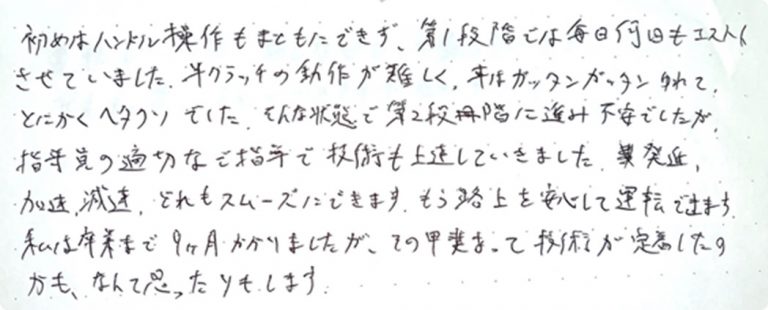 初めはハンドル操作もまともにできず、第1段階では毎日何回もエスト
させていました。半クラッチの動作が難しく、車はガッタンガッタン揺れて、
とにかくヘタクソでした。そんな状態で第2段階に進み不安でしたが、
指導員の適切なご指導で技術も上達していきました。発進、
加速、減速、どれもスムーズにできます。もう路上を安心して運転できます。
私は卒業まで9ヶ月かかりましたが、その甲斐あって技術が定着したの
かも、なんて思ったりもします。